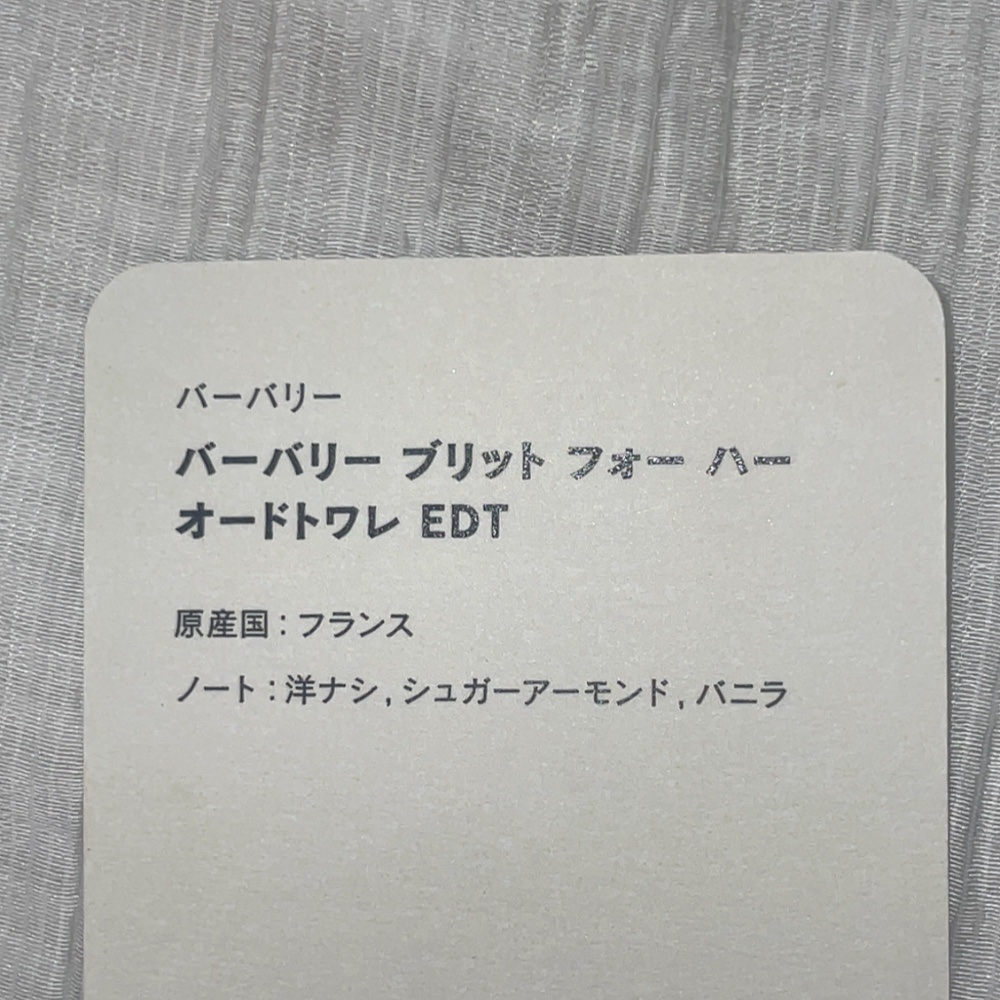 バーバリー
バーバリー ブリット フォー ハー
オードトワレ EDT
原産国：フランス
ノート：洋ナシ, シュガーアーモンド, バニラ